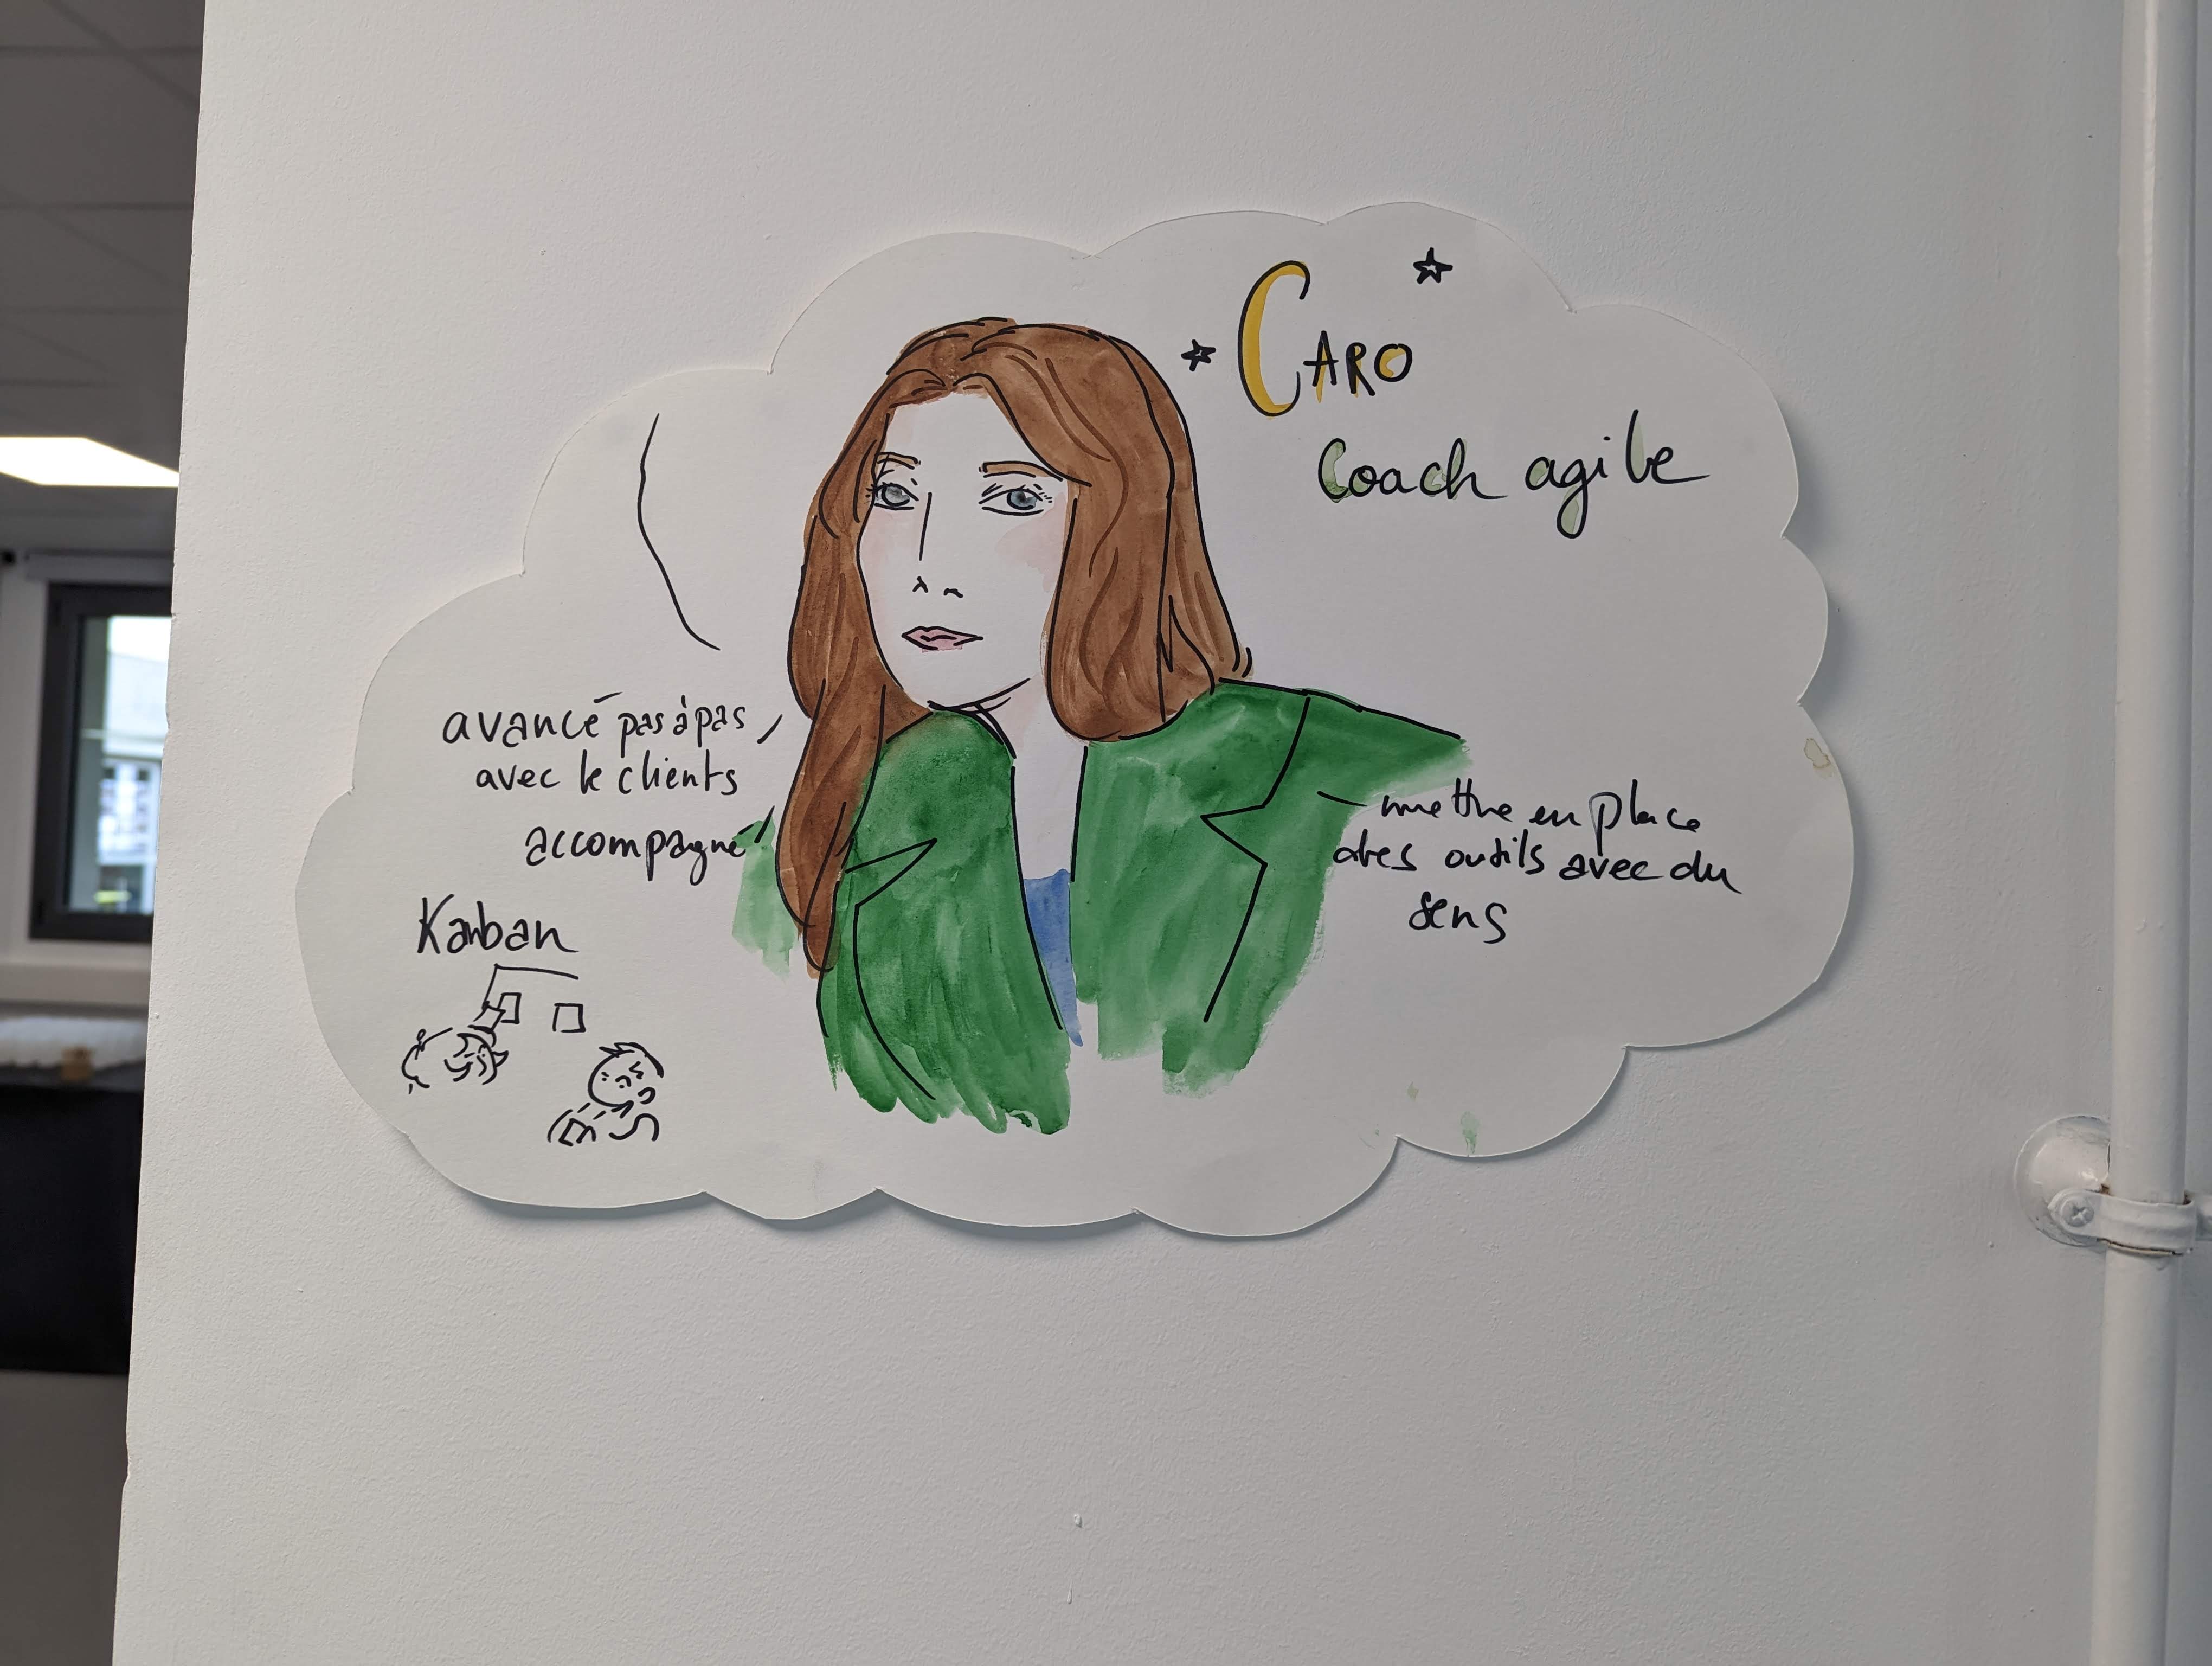 CARO
Coach agile
avancé pas à pas
avec le clients
accompagné
Kanban
mettre en place
des outils avec du
sens